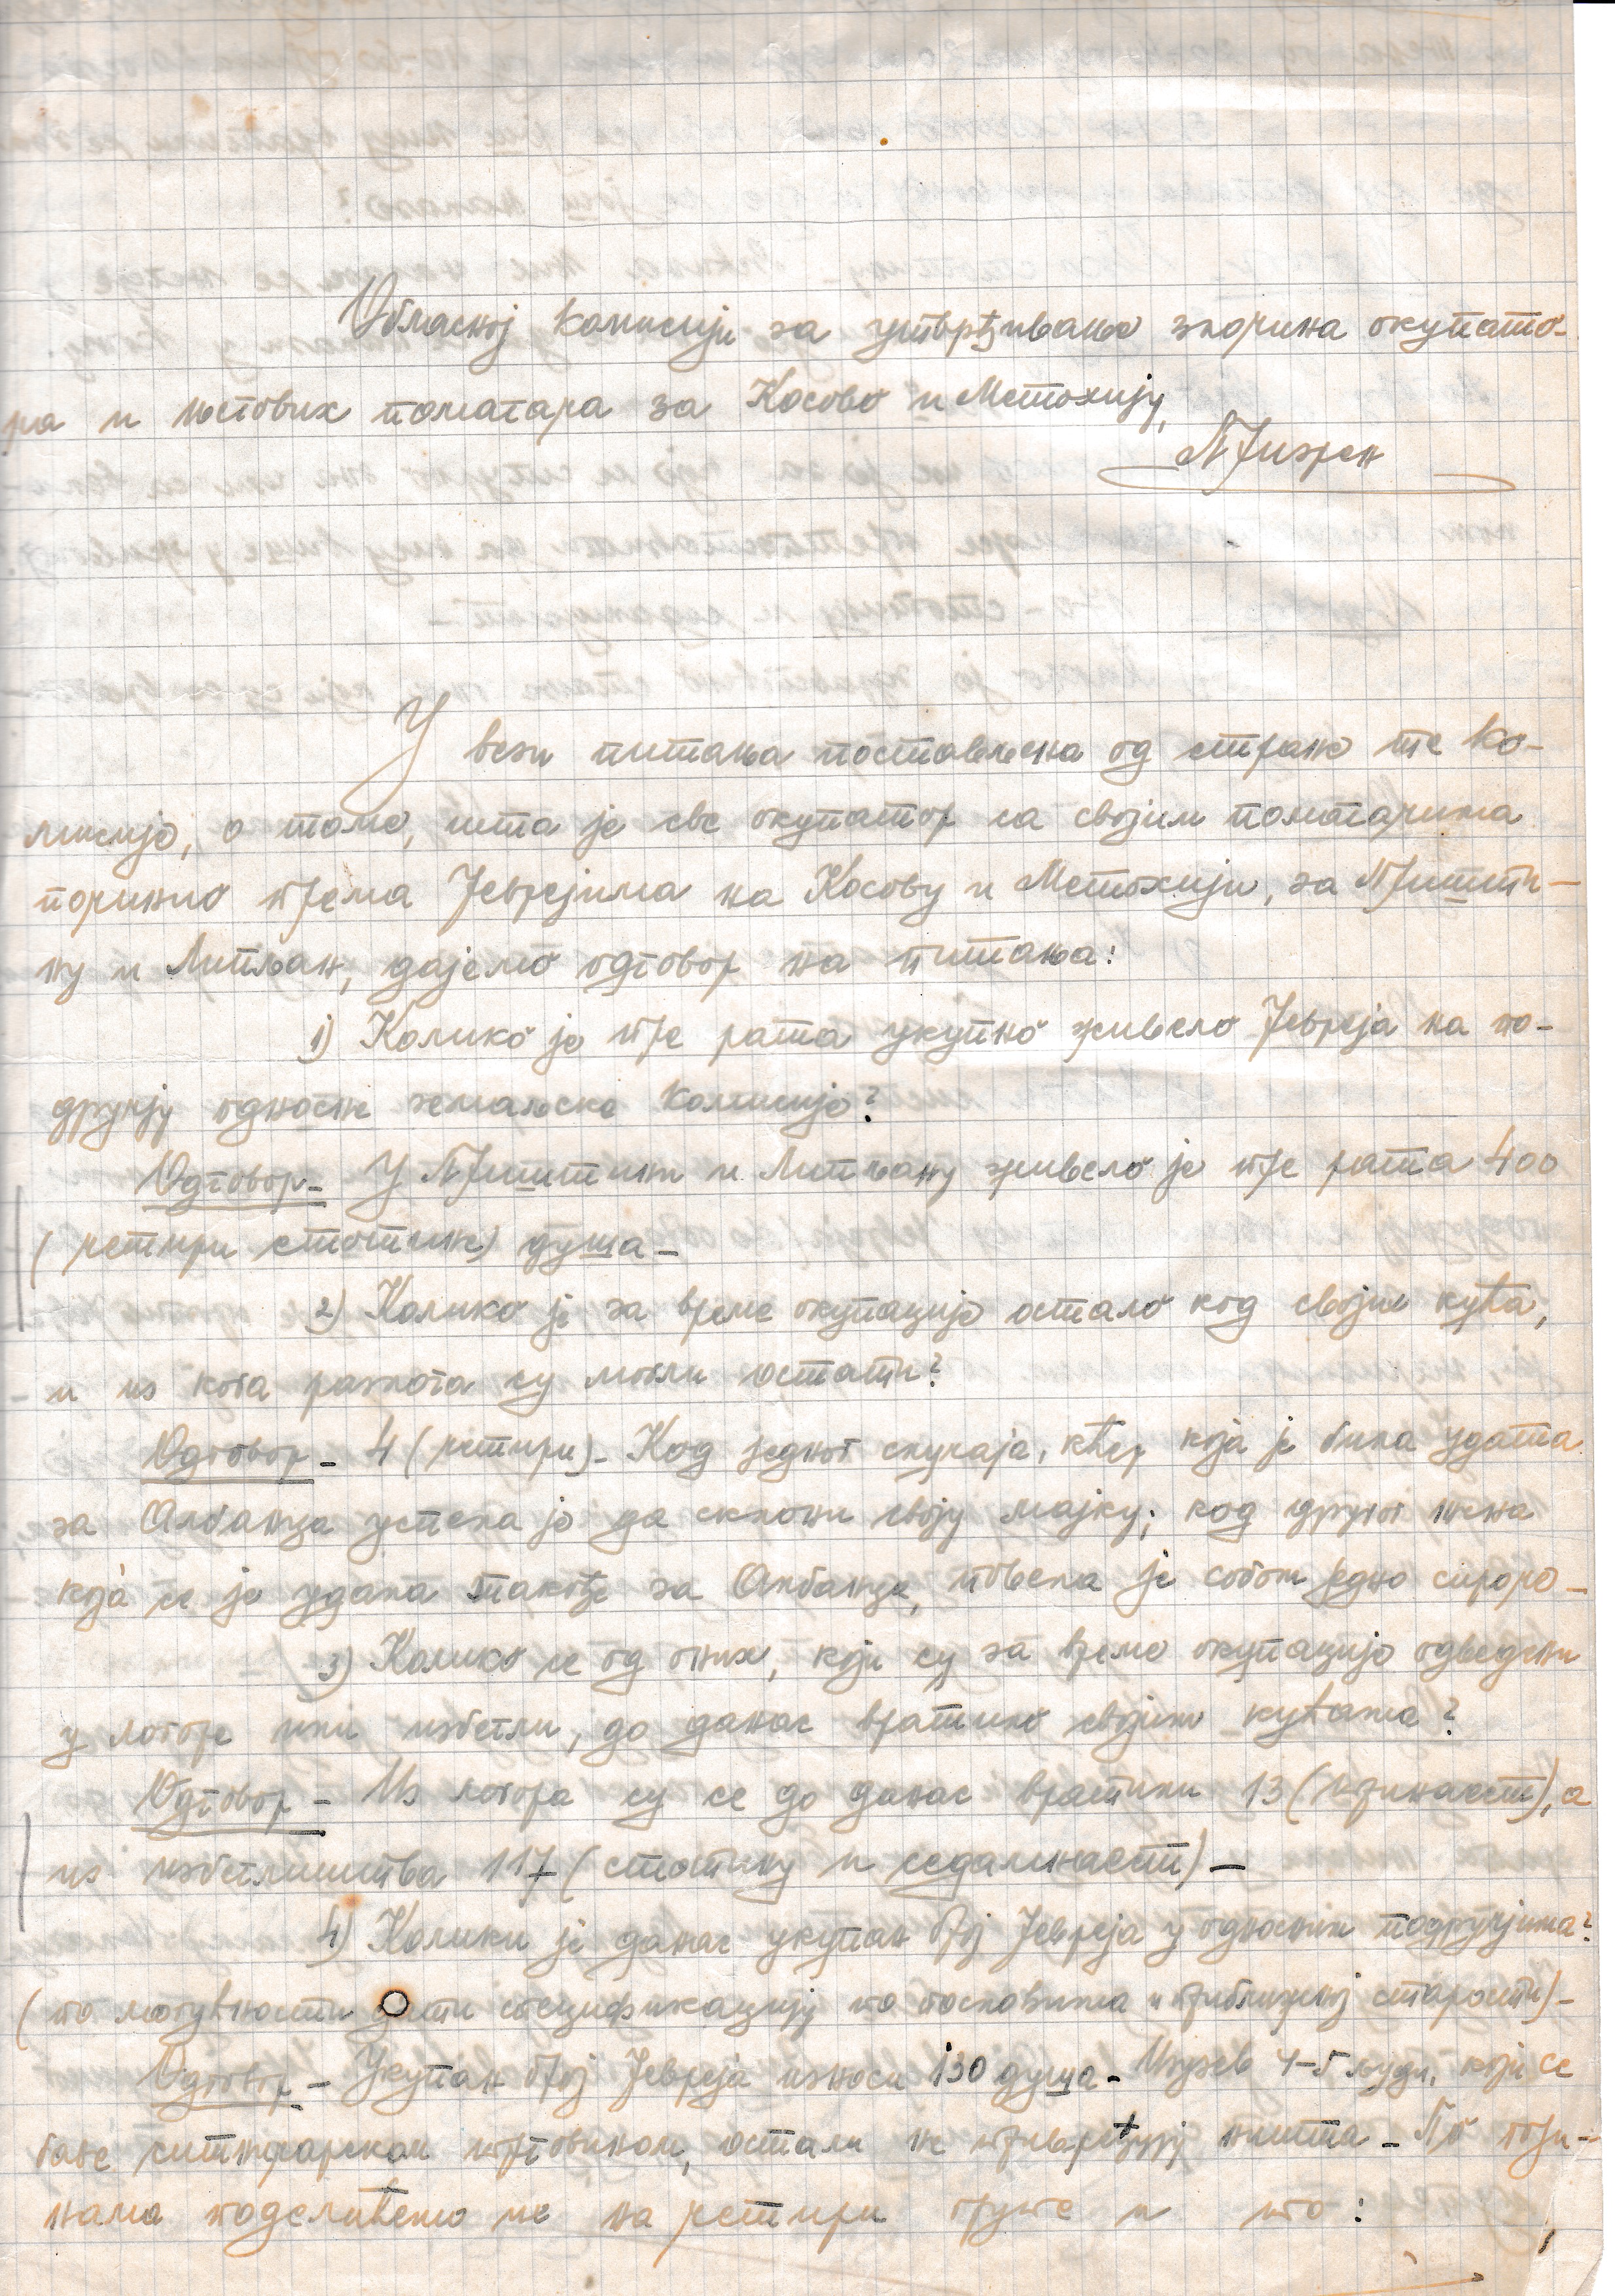 Обласној Комисији за утврђивање злочина окупато-
ра и његових помагара за Косово и Метохију,
Призрен
У вези питања постављена од стране те Ко-
мисије, о томе, шта је све окупатор са својим помагачима
починио према Јеврејима на Косову и Метохији, за Пришти-
ну и Липљан, дајемо одговор на питања:
1) Колико је пре рата укупно живело Јевреја на по-
дручју односне земаљске Комисије?
Одговор- У Приштини и Липљану живело је пре рата 400
(четири стотине) душа-
2) Колико је за време окупације остало код својих кућа,
и из кога разлога су могли остати?
Одговор- 4 (четири)- Код једног случаја, кћер која је била удата
за Албанца успела је да склони своју мајку; код другог жена
која се је удала такође за Албанца, повела је собом једно сироро-
3) Колико се од оних, који су за време окупације одведени
у логоре или избегли, до данас вратило својим кућама?
Одговор- Из логора су се до данас вратили 13 (тринаест), а
из избеглиштва 117 (стотину и седамнаест)-
4) Колики је данас укупан број Јевреја у односним подручјима?
(по могућности дати спецификацију по пословима и приближној старости)-
Одговор- Укупан број Јевреја износи 130 душа- Изузев 4-5 људи, који се
баве ситничарском трговином, остали не привређују ништа- По годи-
нама поделићемо их на четири групе и то: